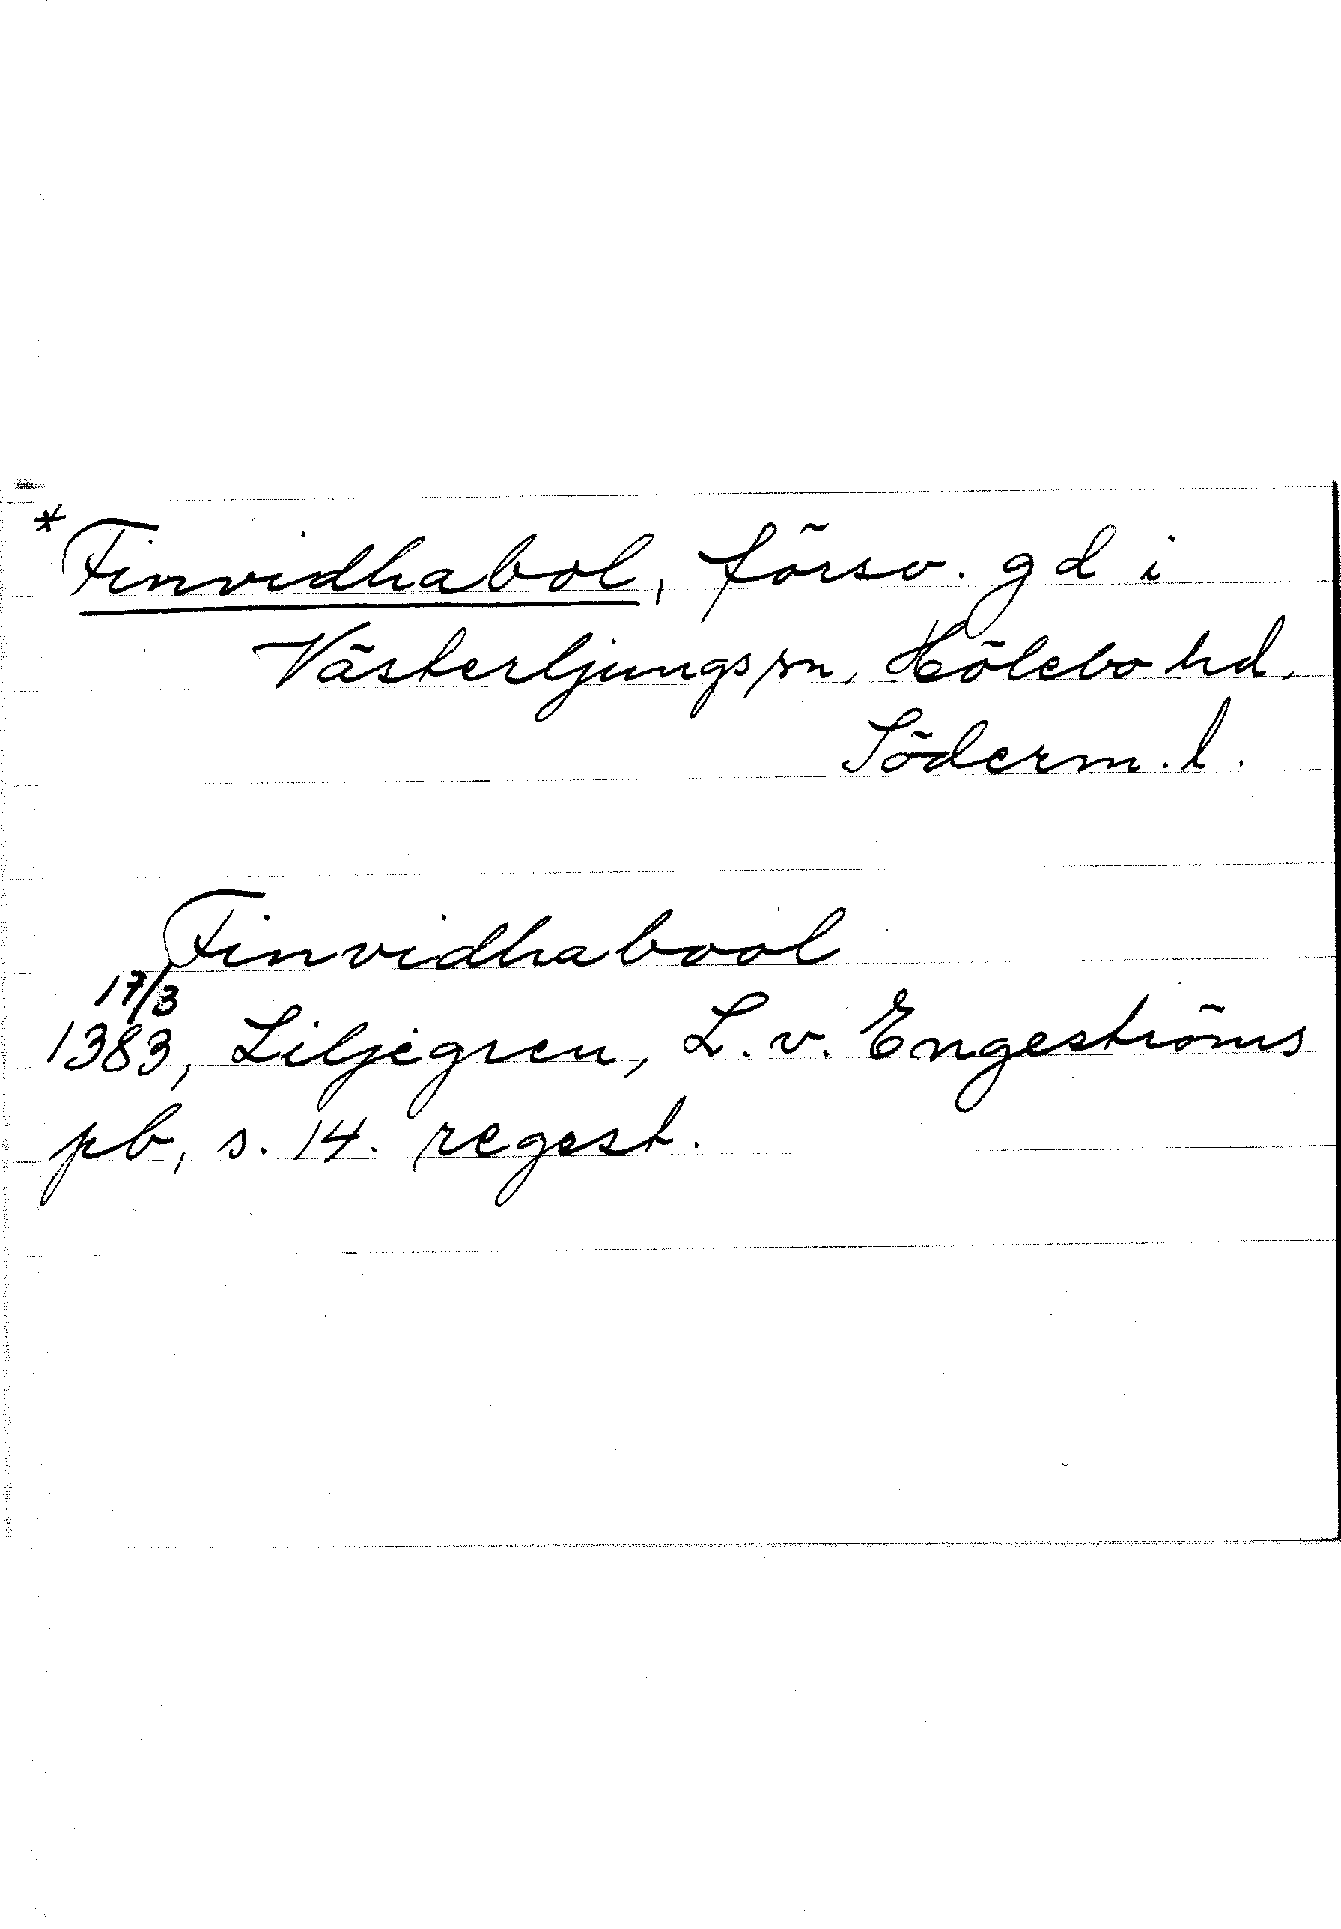 * Finvidhabol, försv. gd i
Västerljungs sn, Hölebo hd,
Söderm. l.
Finvidhabool
17/3
1383, Liljegren, L. v. Engeströms
pb, s. 14. regest.